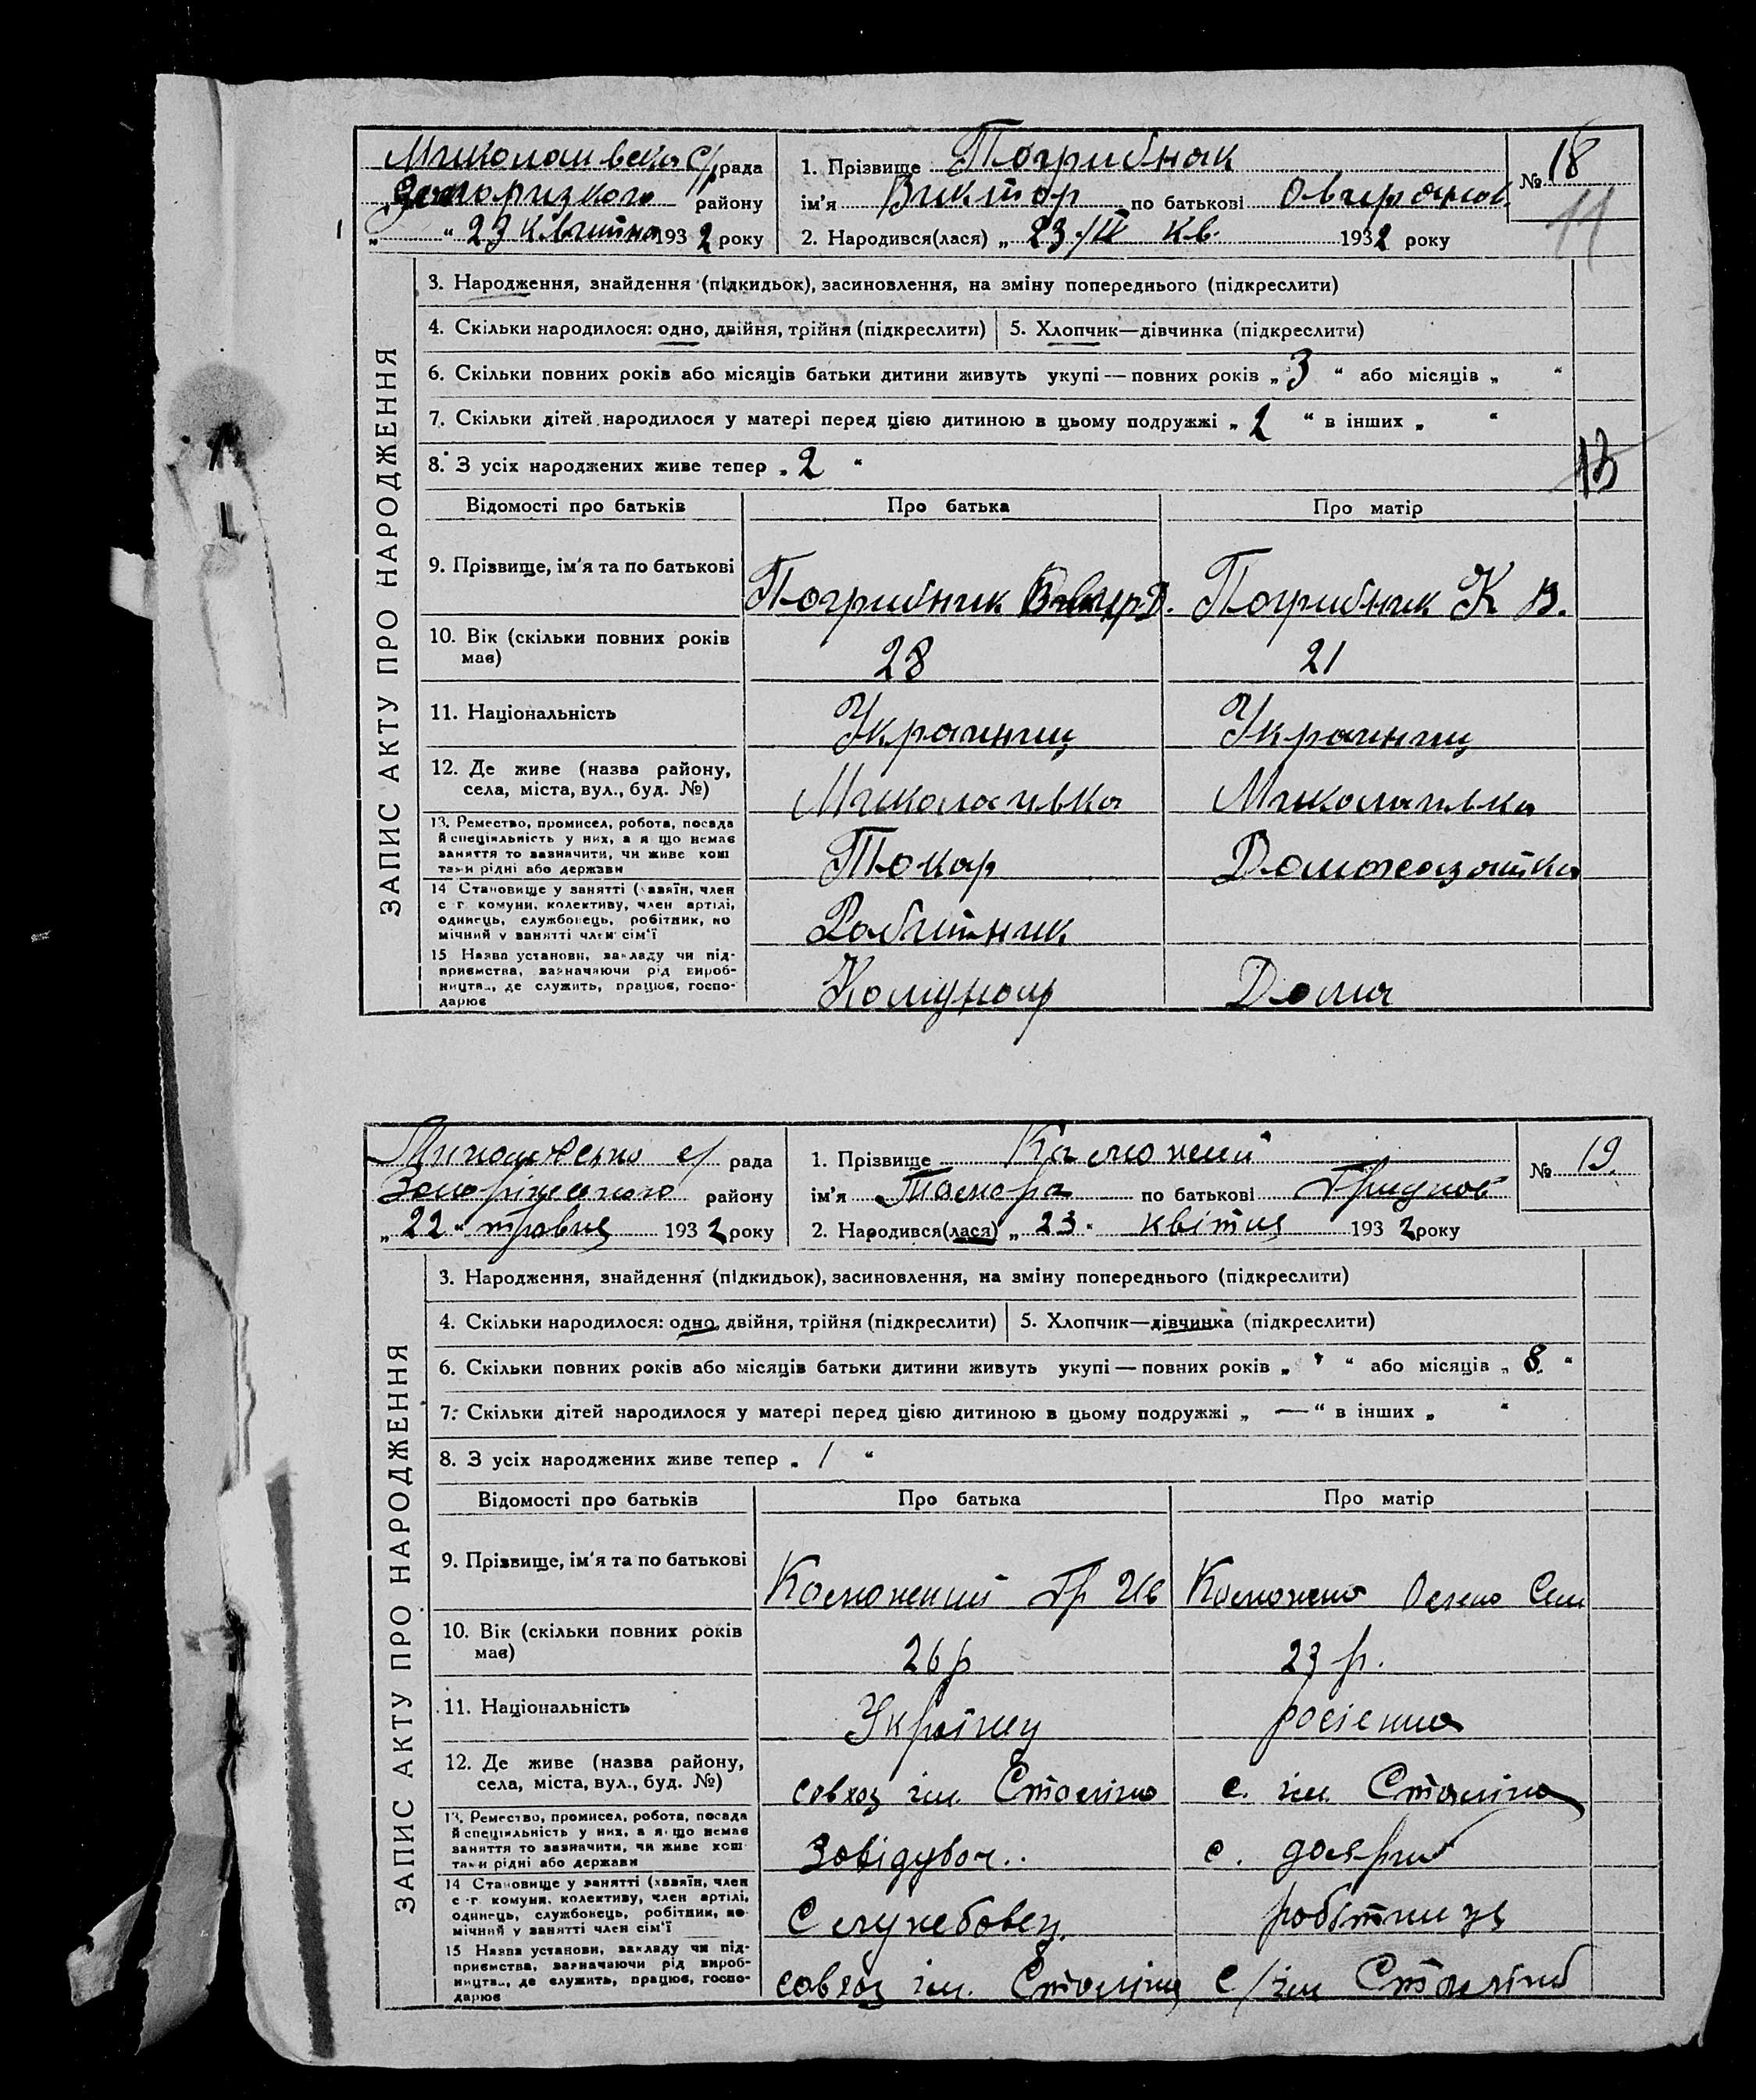 Миколаивска с/рада
Запоризкого району
„ “ 23 Квитня 1932 року
1. Прізвище Погрибняк
ім'я Виктор по батькові
2. Народився(лася) „ 23/IV Кв. 1932 року
№ 18
11
ЗАПИС АКТУ ПРО НАРОДЖЕННЯ
3. Народження, знайдення (підкидьок), засиновлення, на зміну попереднього (підкреслити)
4. Скільки народилося: одно, двійня, трійня (підкреслити) 5. Хлопчик—дівчинка (підкреслити)
6. Скільки повних років або місяців батьки дитини живуть укупі — повних років „ 3 “ або місяців „ “
7. Скільки дітей народилося у матері перед цією дитиною в цьому подружжі „ 2 “ в інших „ “
8. З усіх народжених живе тепер „ 2 “
13
Відомості про батьків Про батька Про матір
9. Прізвище, ім'я та по батькові Погрибник Погрибник К В.
10. Вік (скільки повних років має) 28 21
11. Національність Украиниц Украиниц
12. Де живе (назва району, села, міста, вул., буд. №) Миколаивка Миколаивка
13. Ремество, промисел, робота, посада й спеціяльність у них, а якщо немає заняття то зазначити, чи живе коштами рідні або держави Токар Доможазяйка
14 Становище у занятті (хазяїн, член с г. комуни, колективу, член артілі, одинець, службовець, робітник, помічний у занятті член сім'ї Робитник
15 Назва установи, закладу чи підприємства, зазначаючи рід виробництва, де служить, працює, господарює Комунар Дома
Миколаівська с/ рада
Запоріжського району
„ 22 “ травня 1932 року
1. Прізвище Калюжний
ім'я Тамара по батькові Григнов
2. Народився(лася) „ 23 “ квітня 1932 року
№ 19.
ЗАПИС АКТУ ПРО НАРОДЖЕННЯ
3. Народження, знайдення (підкидьок), засиновлення, на зміну попереднього (підкреслити)
4. Скільки народилося: одно, двійня, трійня (підкреслити) 5. Хлопчик—дівчинка (підкреслити)
6. Скільки повних років або місяців батьки дитини живуть укупі — повних років „ “ або місяців „ 8. “
7. Скільки дітей народилося у матері перед цією дитиною в цьому подружжі „ — “ в інших „ “
8. З усіх народжених живе тепер „ 1 “
Відомості про батьків Про батька Про матір
9. Прізвище, ім'я та по батькові Калюжний Гр Ив Калюжна Олена Сем
10. Вік (скільки повних років має) 26 р 23 р.
11. Національність Українец росіянка
12. Де живе (назва району, села, міста, вул., буд. №) совхоз ім. Сталіна с. ім. Сталіна
13. Ремество, промисел, робота, посада й спеціяльність у них, а якщо немає заняття то зазначити, чи живе коштами рідні або держави Завідувач.. доярка
14 Становище у занятті (хазяїн, член с-г. комуни, колективу, член артілі, одинець, службовець, робітник, помічний у занятті член сім'ї Служебовец. робітниця
15 Назва установи, закладу чи підприємства, зазначаючи рід виробництва, де служить, працює, господарює совхоз ім. Сталіна с/ ім Сталіна